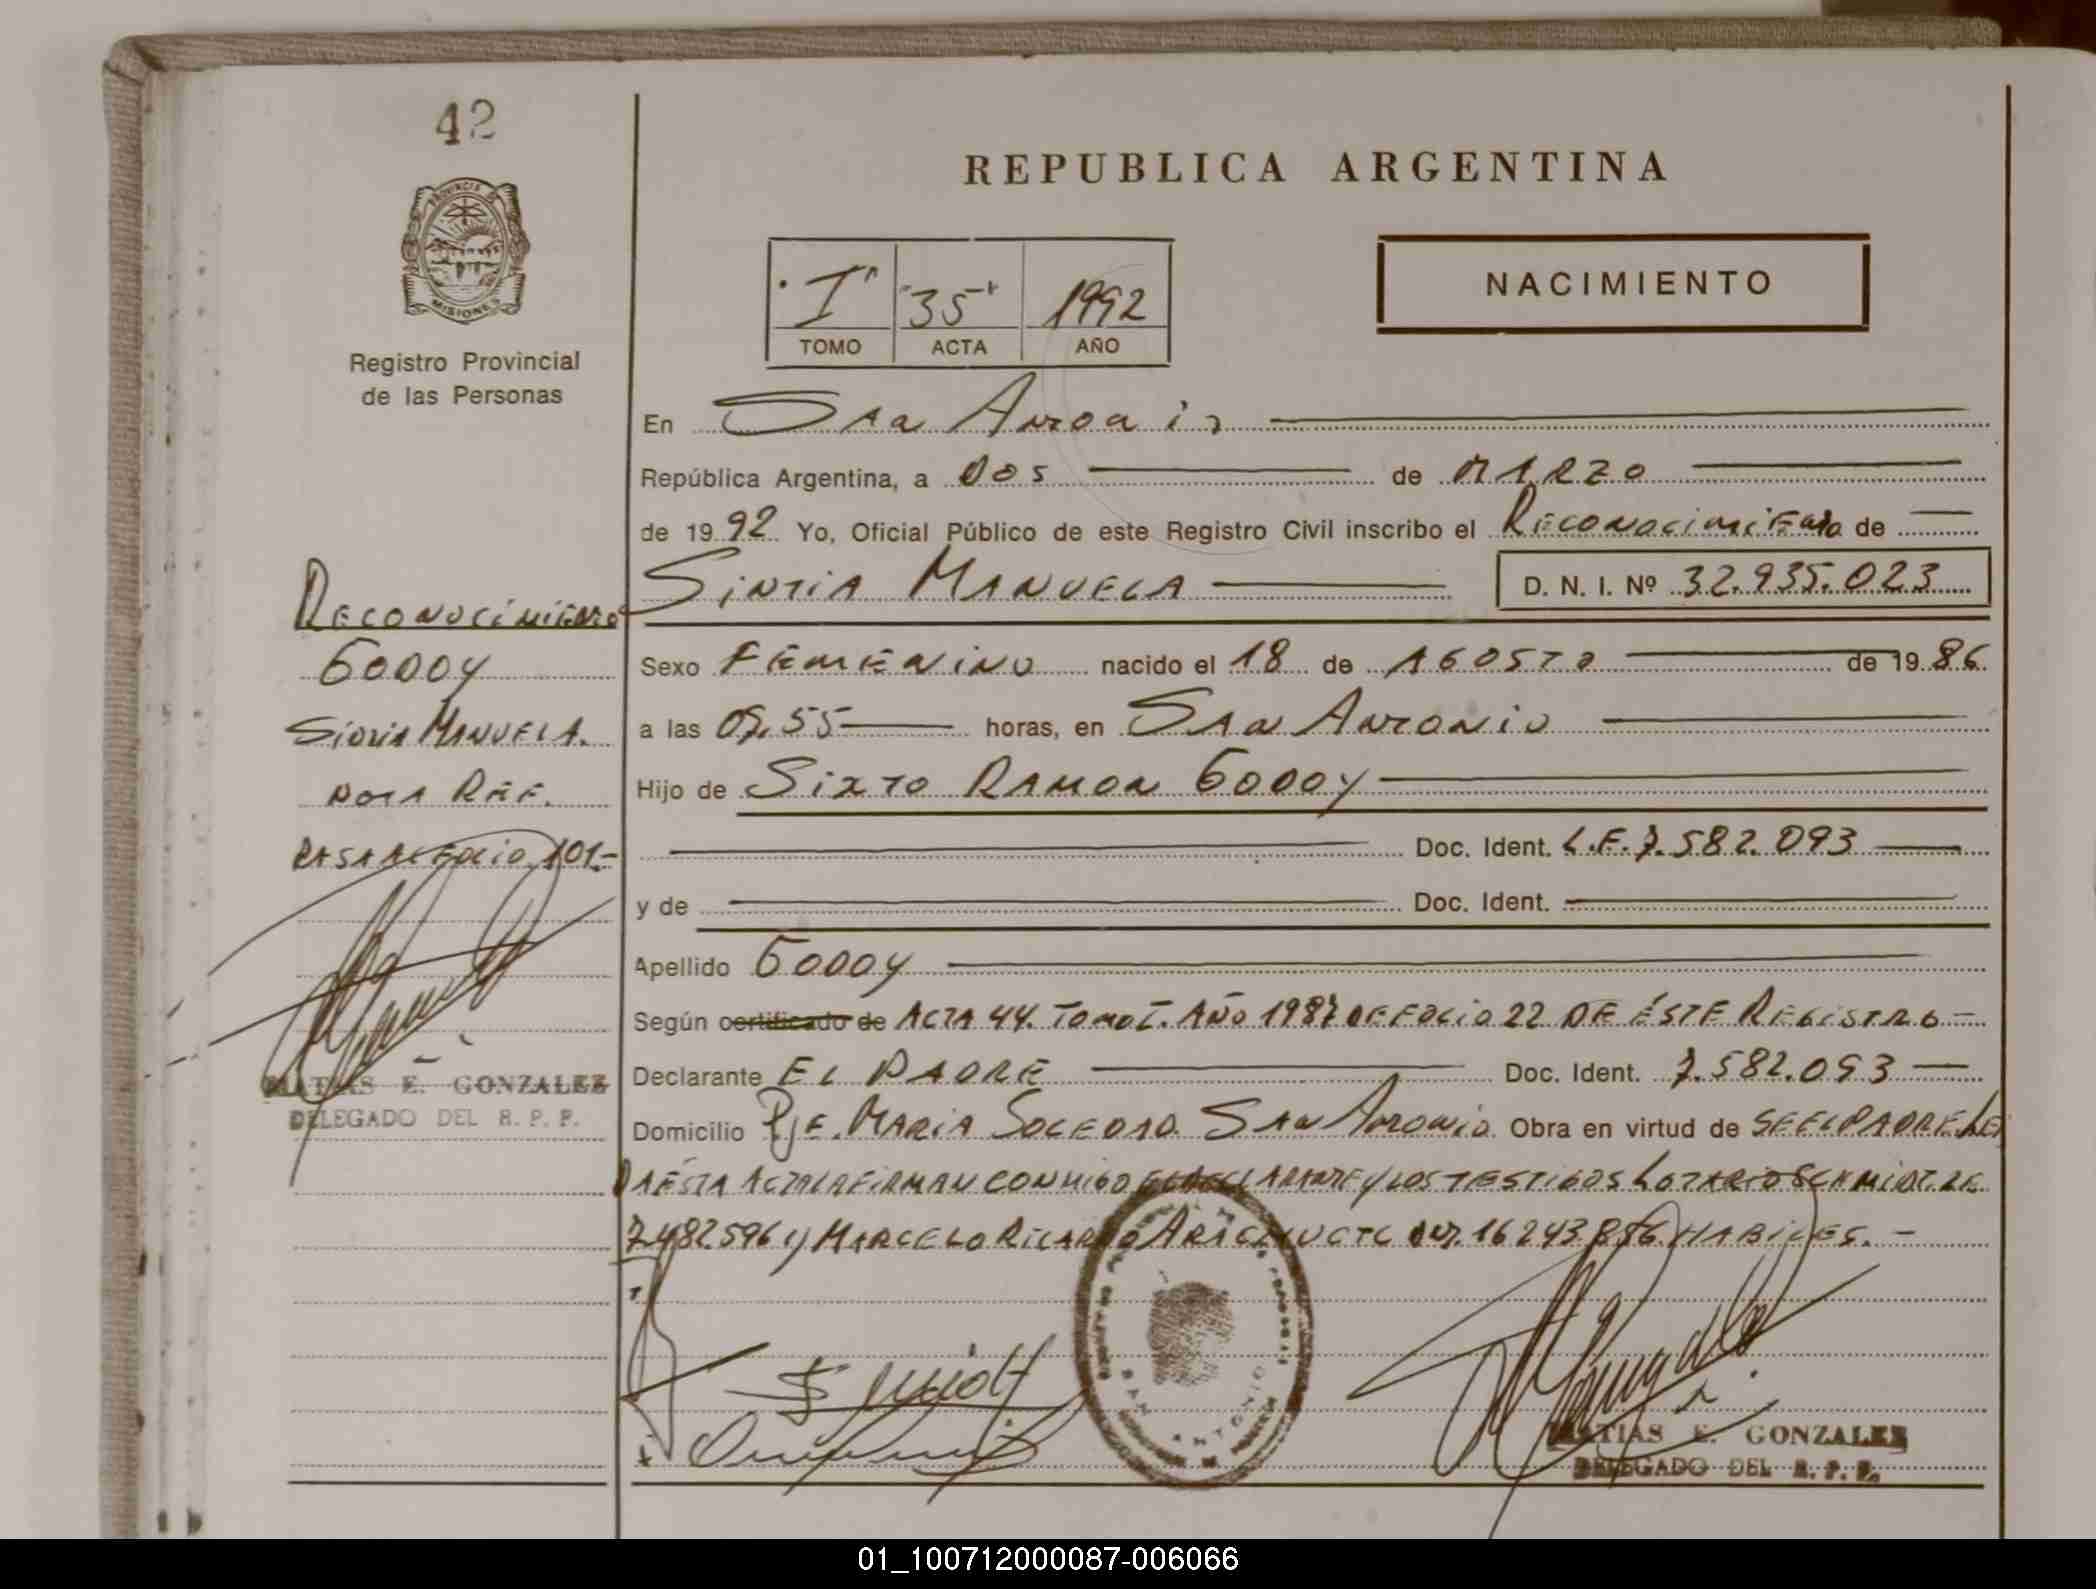 42
REPUBLICA ARGENTINA
PROVINCIA DE
MISIONES
Registro Provincial
de las Personas
I 35 1992
TOMO ACTA AÑO
NACIMIENTO
En San Antonio
República Argentina, a DOS de MARZO
de 1992 Yo, Oficial Público de este Registro Civil inscribo el Reconocimiento de
SINTIA MANUELA D. N. I. Nº 32.935.023
Sexo FEMENINO nacido el 18 de AGOSTO de 1986
a las 09,55 horas, en SAN ANTONIO
Hijo de SIXTO RAMON GODOY
Doc. Ident. L.E. 7.582.093
y de Doc. Ident.
Apellido GODOY
Según certificado de ACTA 44. TOMO I. AÑO 1987 DE FOLIO 22 DE ÉSTE REGISTRO
Declarante EL PADRE Doc. Ident. 7.582.093
Domicilio Pje. MARIA SOLEDAD. SAN ANTONIO. Obra en virtud de SEEL PADRE LEI
DA ÉSTA ACTA LA FIRMAN CONMIGO EL DECLARANTE Y LOS TESTIGOS LOTARIO SCHMIDT. LE
7.482.596 y MARCELO RICARDO DNI. 16.243.856. HABILES.
RECONOCIMIENTO
GODOY
SINTIA MANUELA.
NOTA REF.
PASA AL FOLIO 101.-
MATIAS E. GONZALEZ
DELEGADO DEL R. P. P.
SAN ANTONIO
MATIAS E. GONZALEZ
DELEGADO DEL R. P. P.
01_100712000087-006066